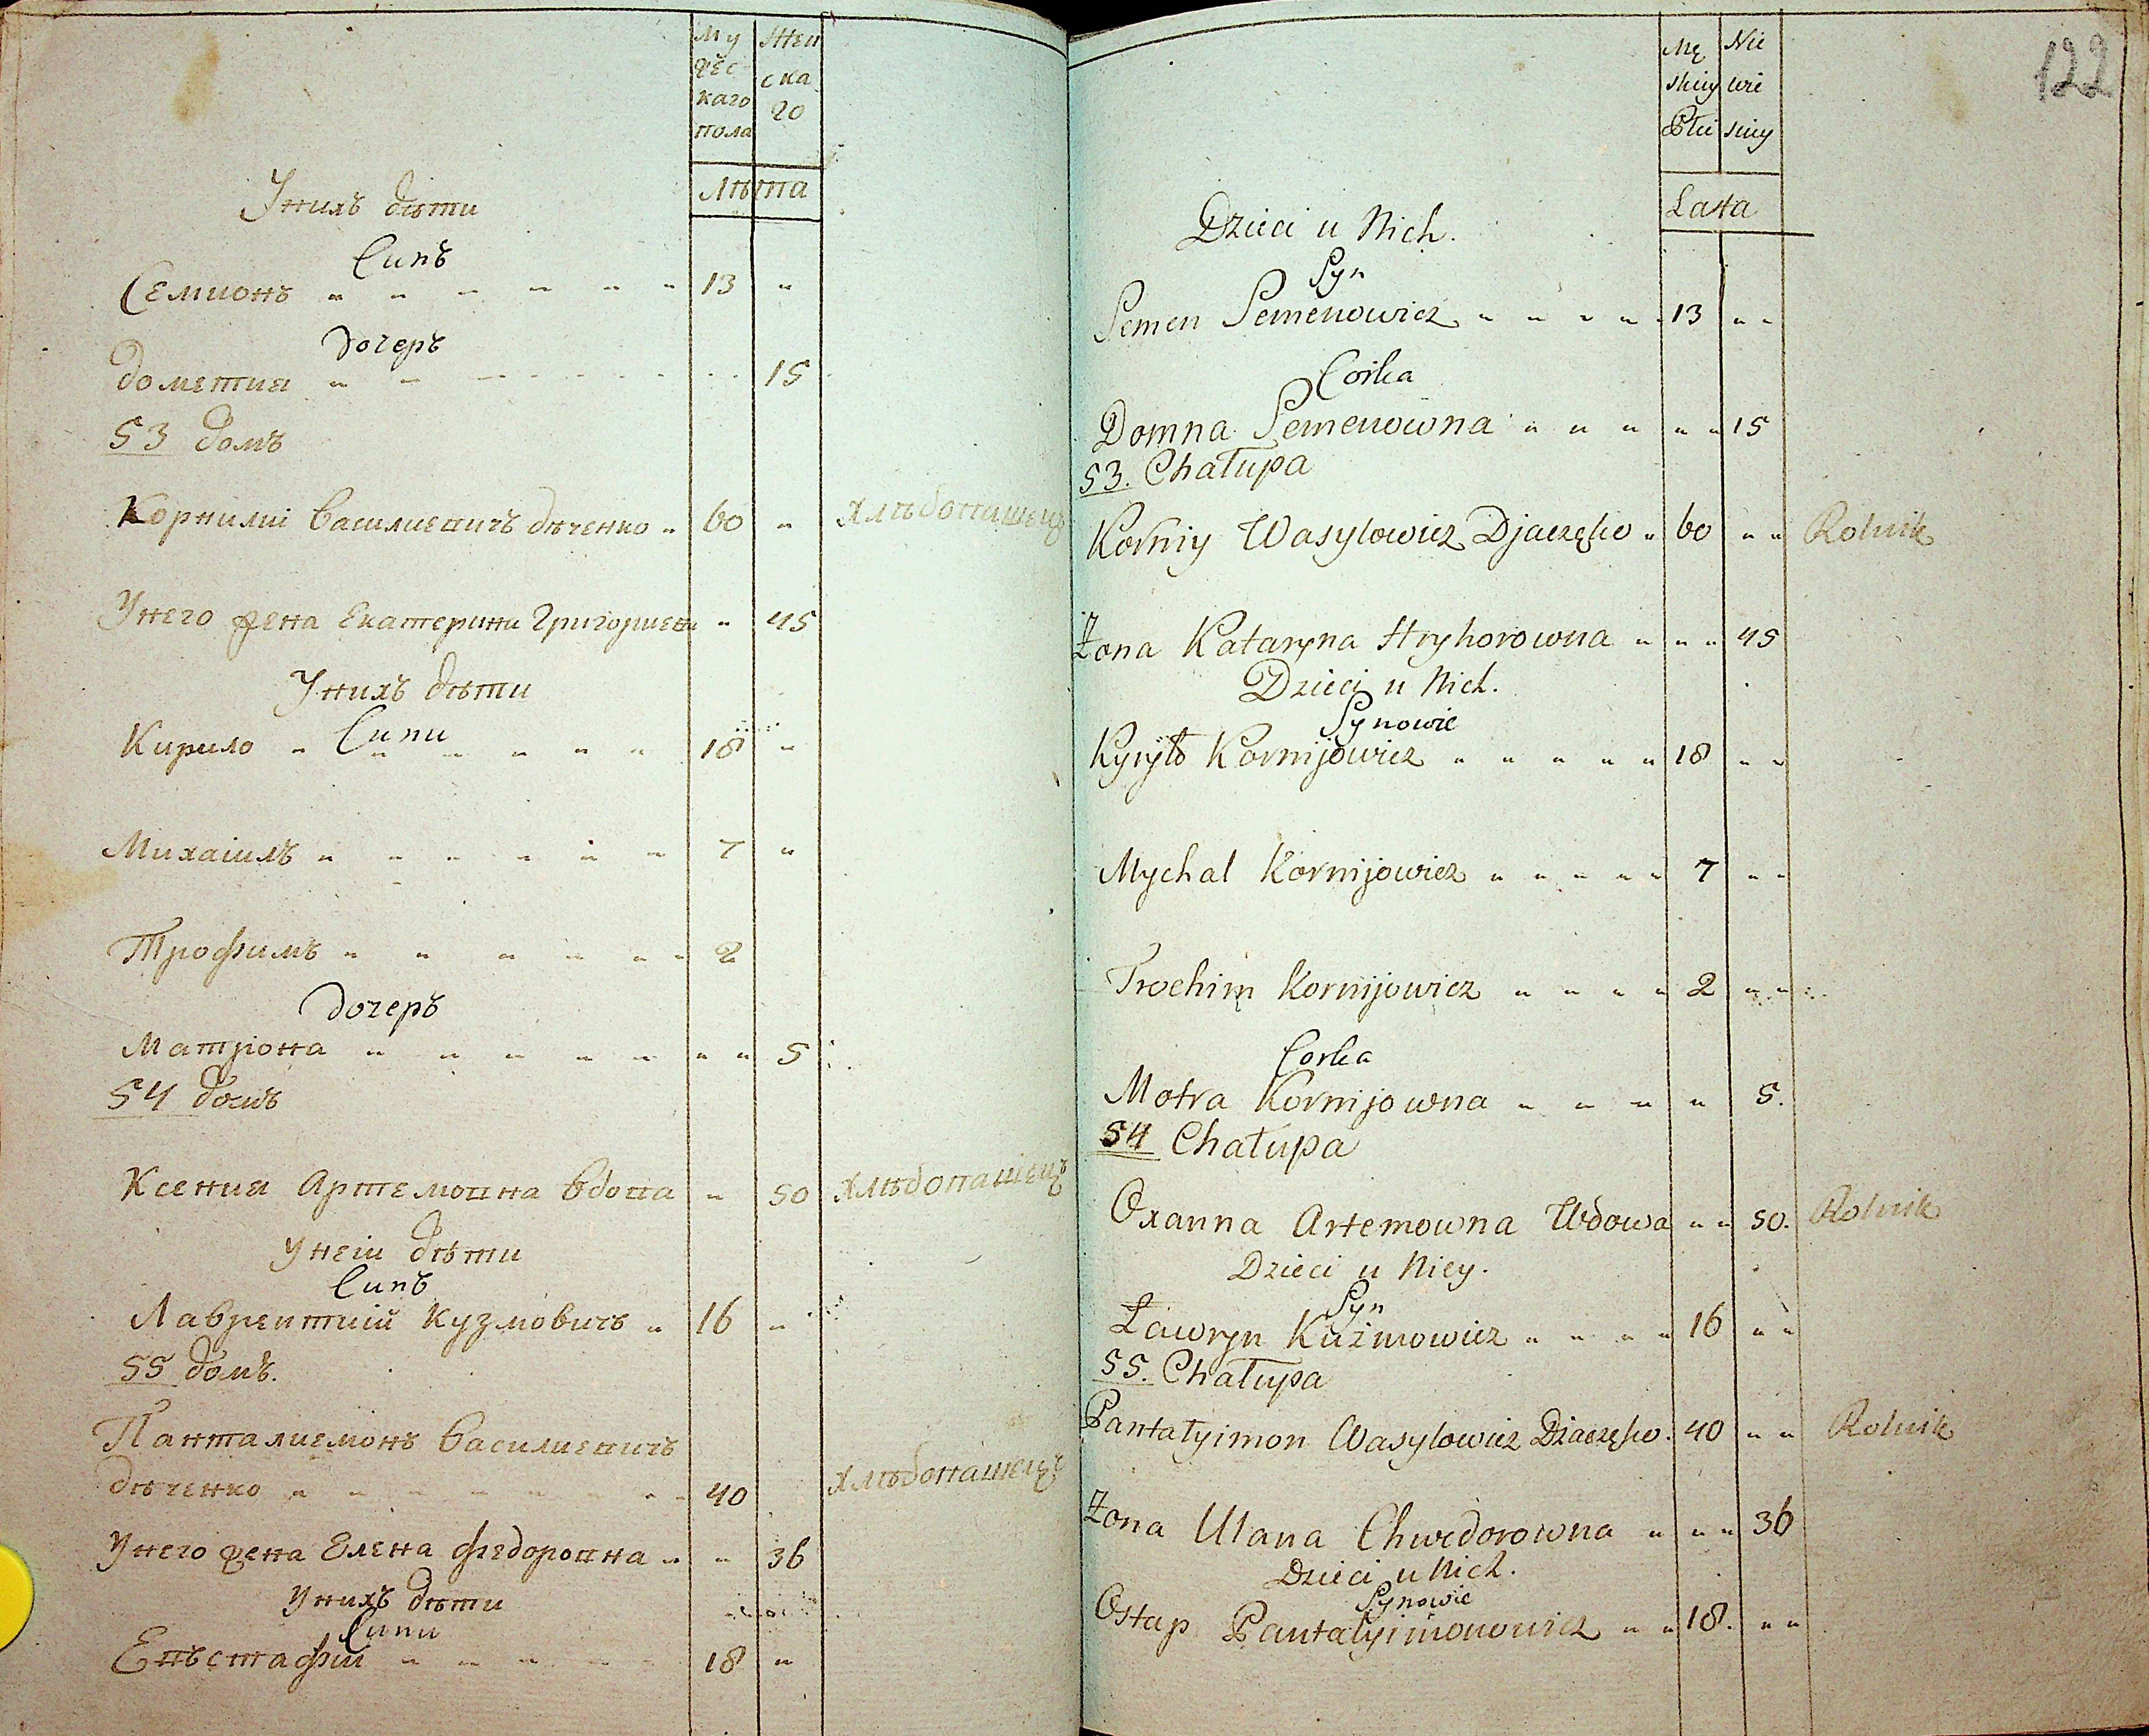 Му Жен
жес ска
каго го
пола
Лѣта
Унихъ дѣти
Синъ
Семионъ 13
дочеръ
дометия 15
53 домъ
Корнилий Василиевичъ дяченко 60 хлѣбопашецъ
Унего жена Екатерина Григориевн 45
Унихъ дѣти
Сини
Кирило 18
Михаилъ 7
Трофимъ 2
дочеръ
Матрiона 5
54 домъ
Ксения Артемовна вдова 50 хлѣбопашецъ
Унеiи дѣти
Синъ
Лаврентий Кузмовичъ 16
55 домъ.
Пантилиемонъ Василиевичъ
дяченко 40 хлѣбопашецъ
Унего жена Елена Федоровна 36
Унихъ дѣти
Сини
Евъстафiи 18
122
Mę Nie
skiey wie
Płci sciey
Lata
Dzieci u Nich.
Syn
Semen Semenowicz 13
Corka
Domna Semenowna 15
53. Chałupa
Korniy Wasylowicz Djaczęko 60 Rolnik
Żona Kataryna Hryhorowna 45
Dzieci u Nich.
Synowie
Kyryło Kornijowicz 18
Mychal Kornijowicz 7
Trochim Kornijowicz 2
Corka
Motra Kornijowna 5.
54 Chałupa
Oxanna Artemowna Wdowa 50. Rolnik
Dzieci u Niey.
Syn
Ławryn Kuźmowicz 16
55. Chałupa
Pantałyimon Wasylowicz Dżaczęko. 40 Rolnik
Żona Ulana Chwedorowna 36
Dzieci u Nich.
Synowie
Ostap Pantałyimonowicz 18.